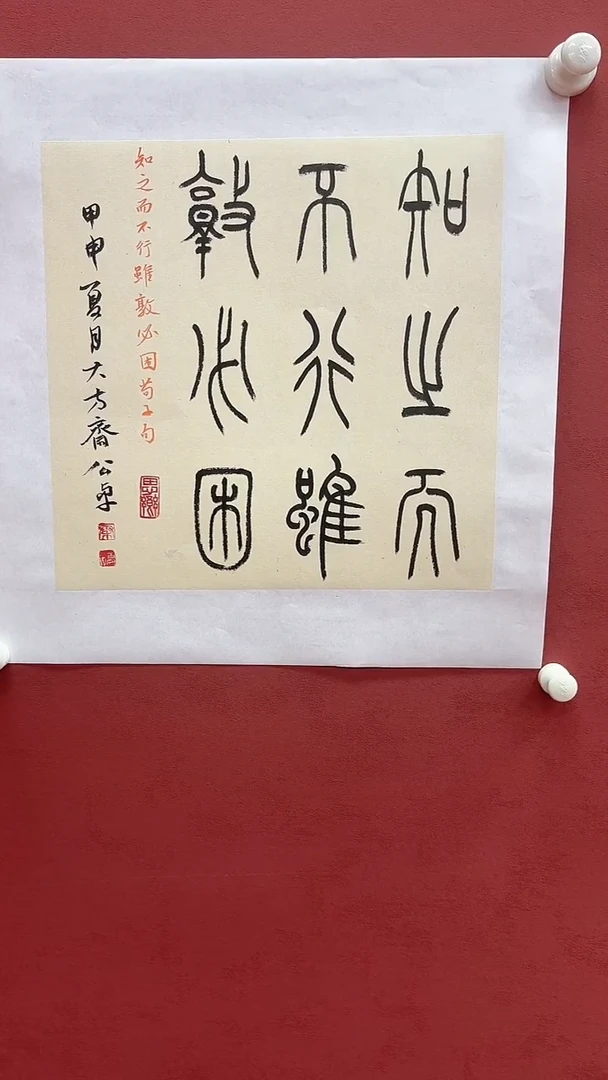 知之而
不行雖
敦必困
知之而不行雖敦必困荀子句
甲申夏月大方齋公卓